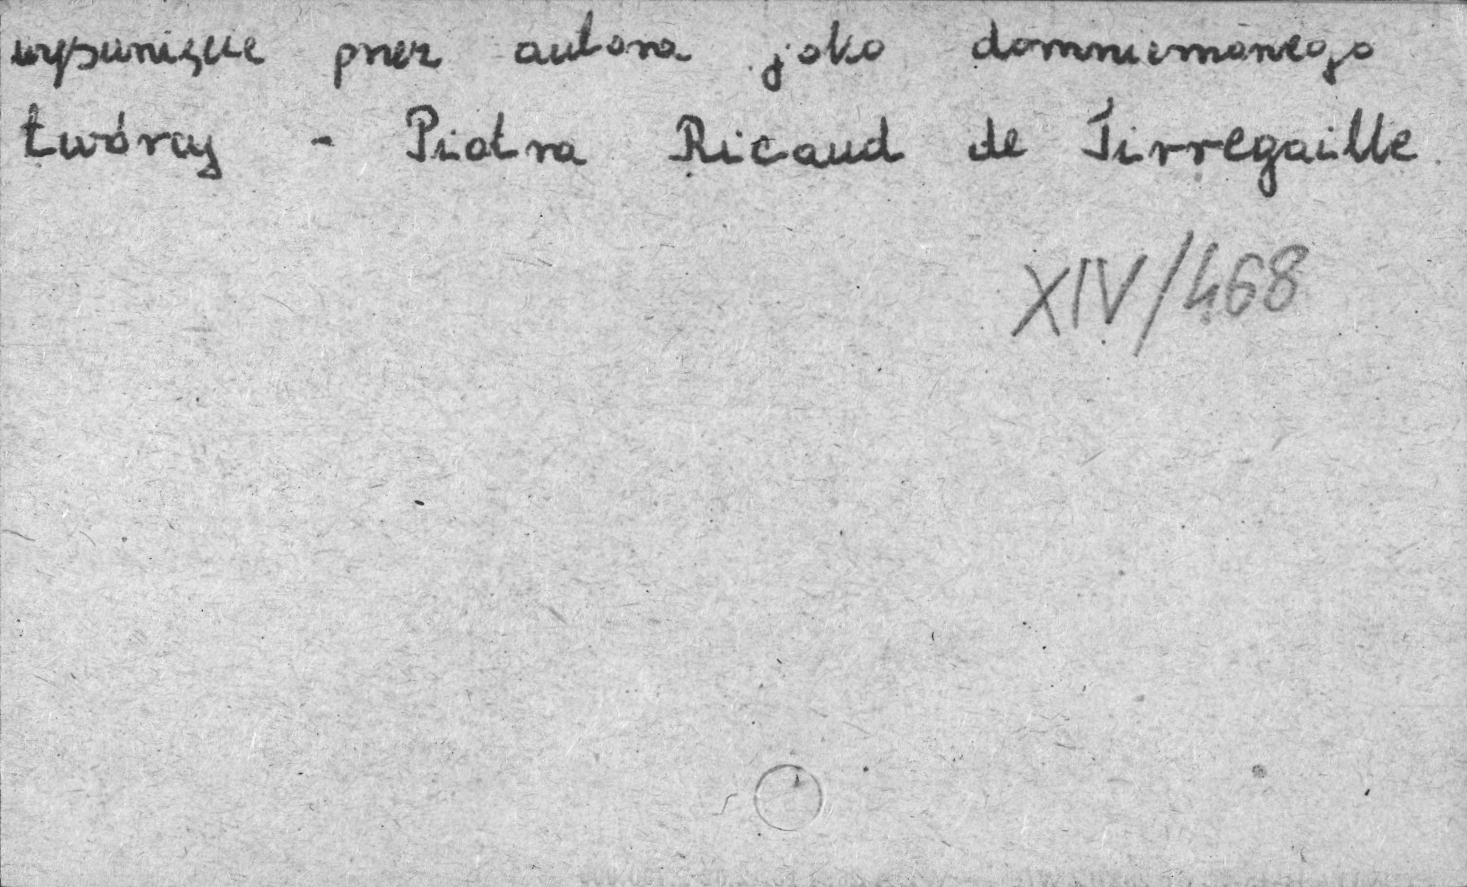 wysunięcie przez autora jako domniemanego
twórcy - Piotra Ricaud de Tirregaille.
XIV/468